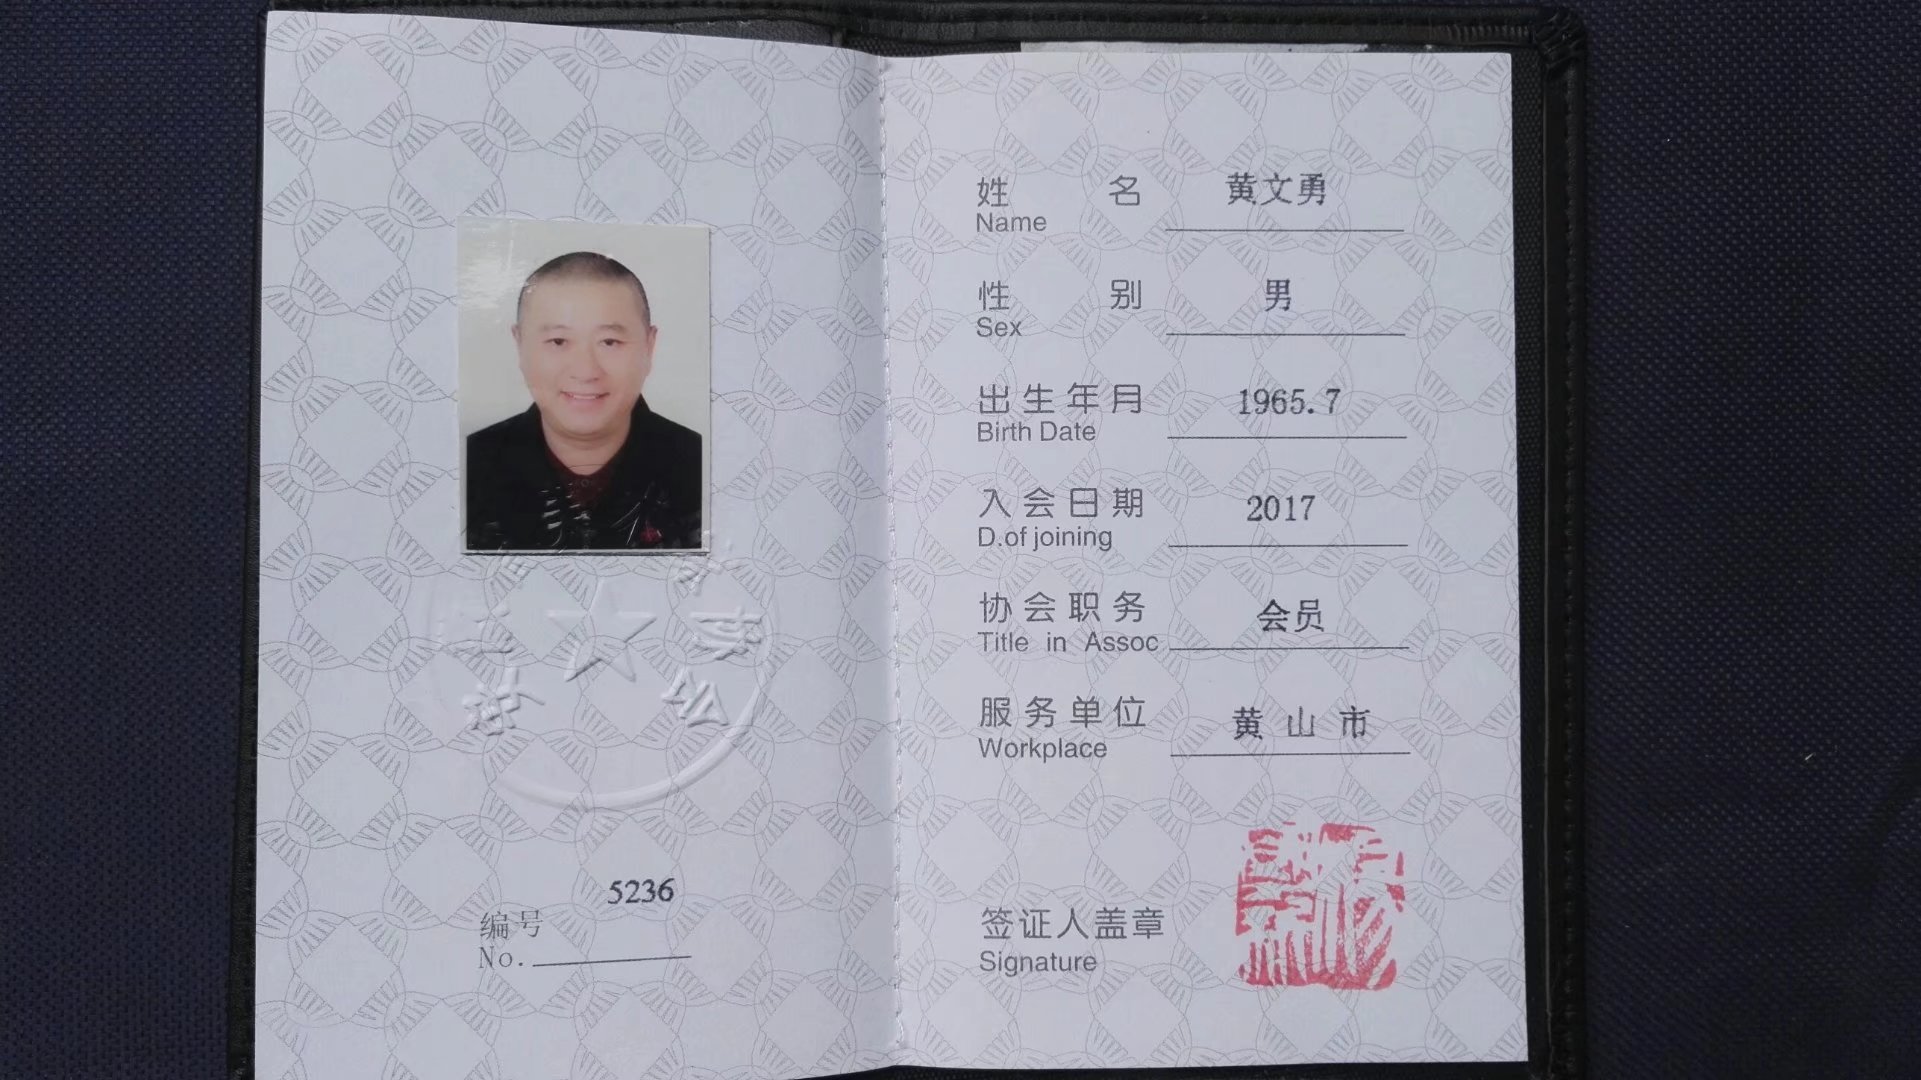 5236
编号
No.
姓 名 黄文勇
Name
性 别 男
Sex
出生年月 1965.7
Birth Date
入会日期 2017
D.of joining
协会职务 会员
Title in Assoc
服务单位 黄山市
Workplace
签证人盖章
Signature